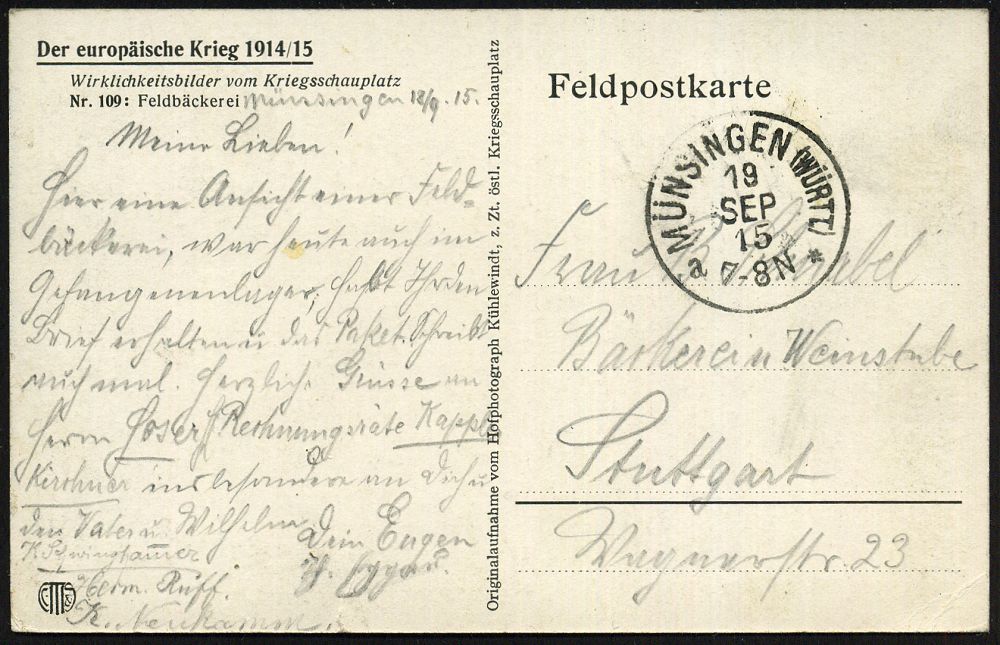 Der europäische Krieg 1914/15
Wirklichkeitsbilder vom Kriegsschauplatz
Nr. 109: Feldbäckerei Münsingen 18/9. 15.
Meine Lieben!
Hier eine Ansicht einer Feld-
bäckerei, war heute auch im
Gefangenenlager, habt Ihr den
Brief erhalten u das Paket. Schreibt
auch mal. Herzliche Grüsse an
Herrn Rechnungsräte Kappler
Kirchner insbesondere an Dich u
den Vater u. Wilhelm
Dein Eugen
K. Zwinghauer
Herm. Ruff.
K. Neukamm.
Originalaufnahme vom Hofphotograph Kühlewindt, z. Zt. östl. Kriegsschauplatz
Feldpostkarte
MÜNSINGEN (WÜRTT.)
19
SEP
15
a 7-8N *
Frau
Bäckerei u Weinstube
Stuttgart
Wagnerstr. 23